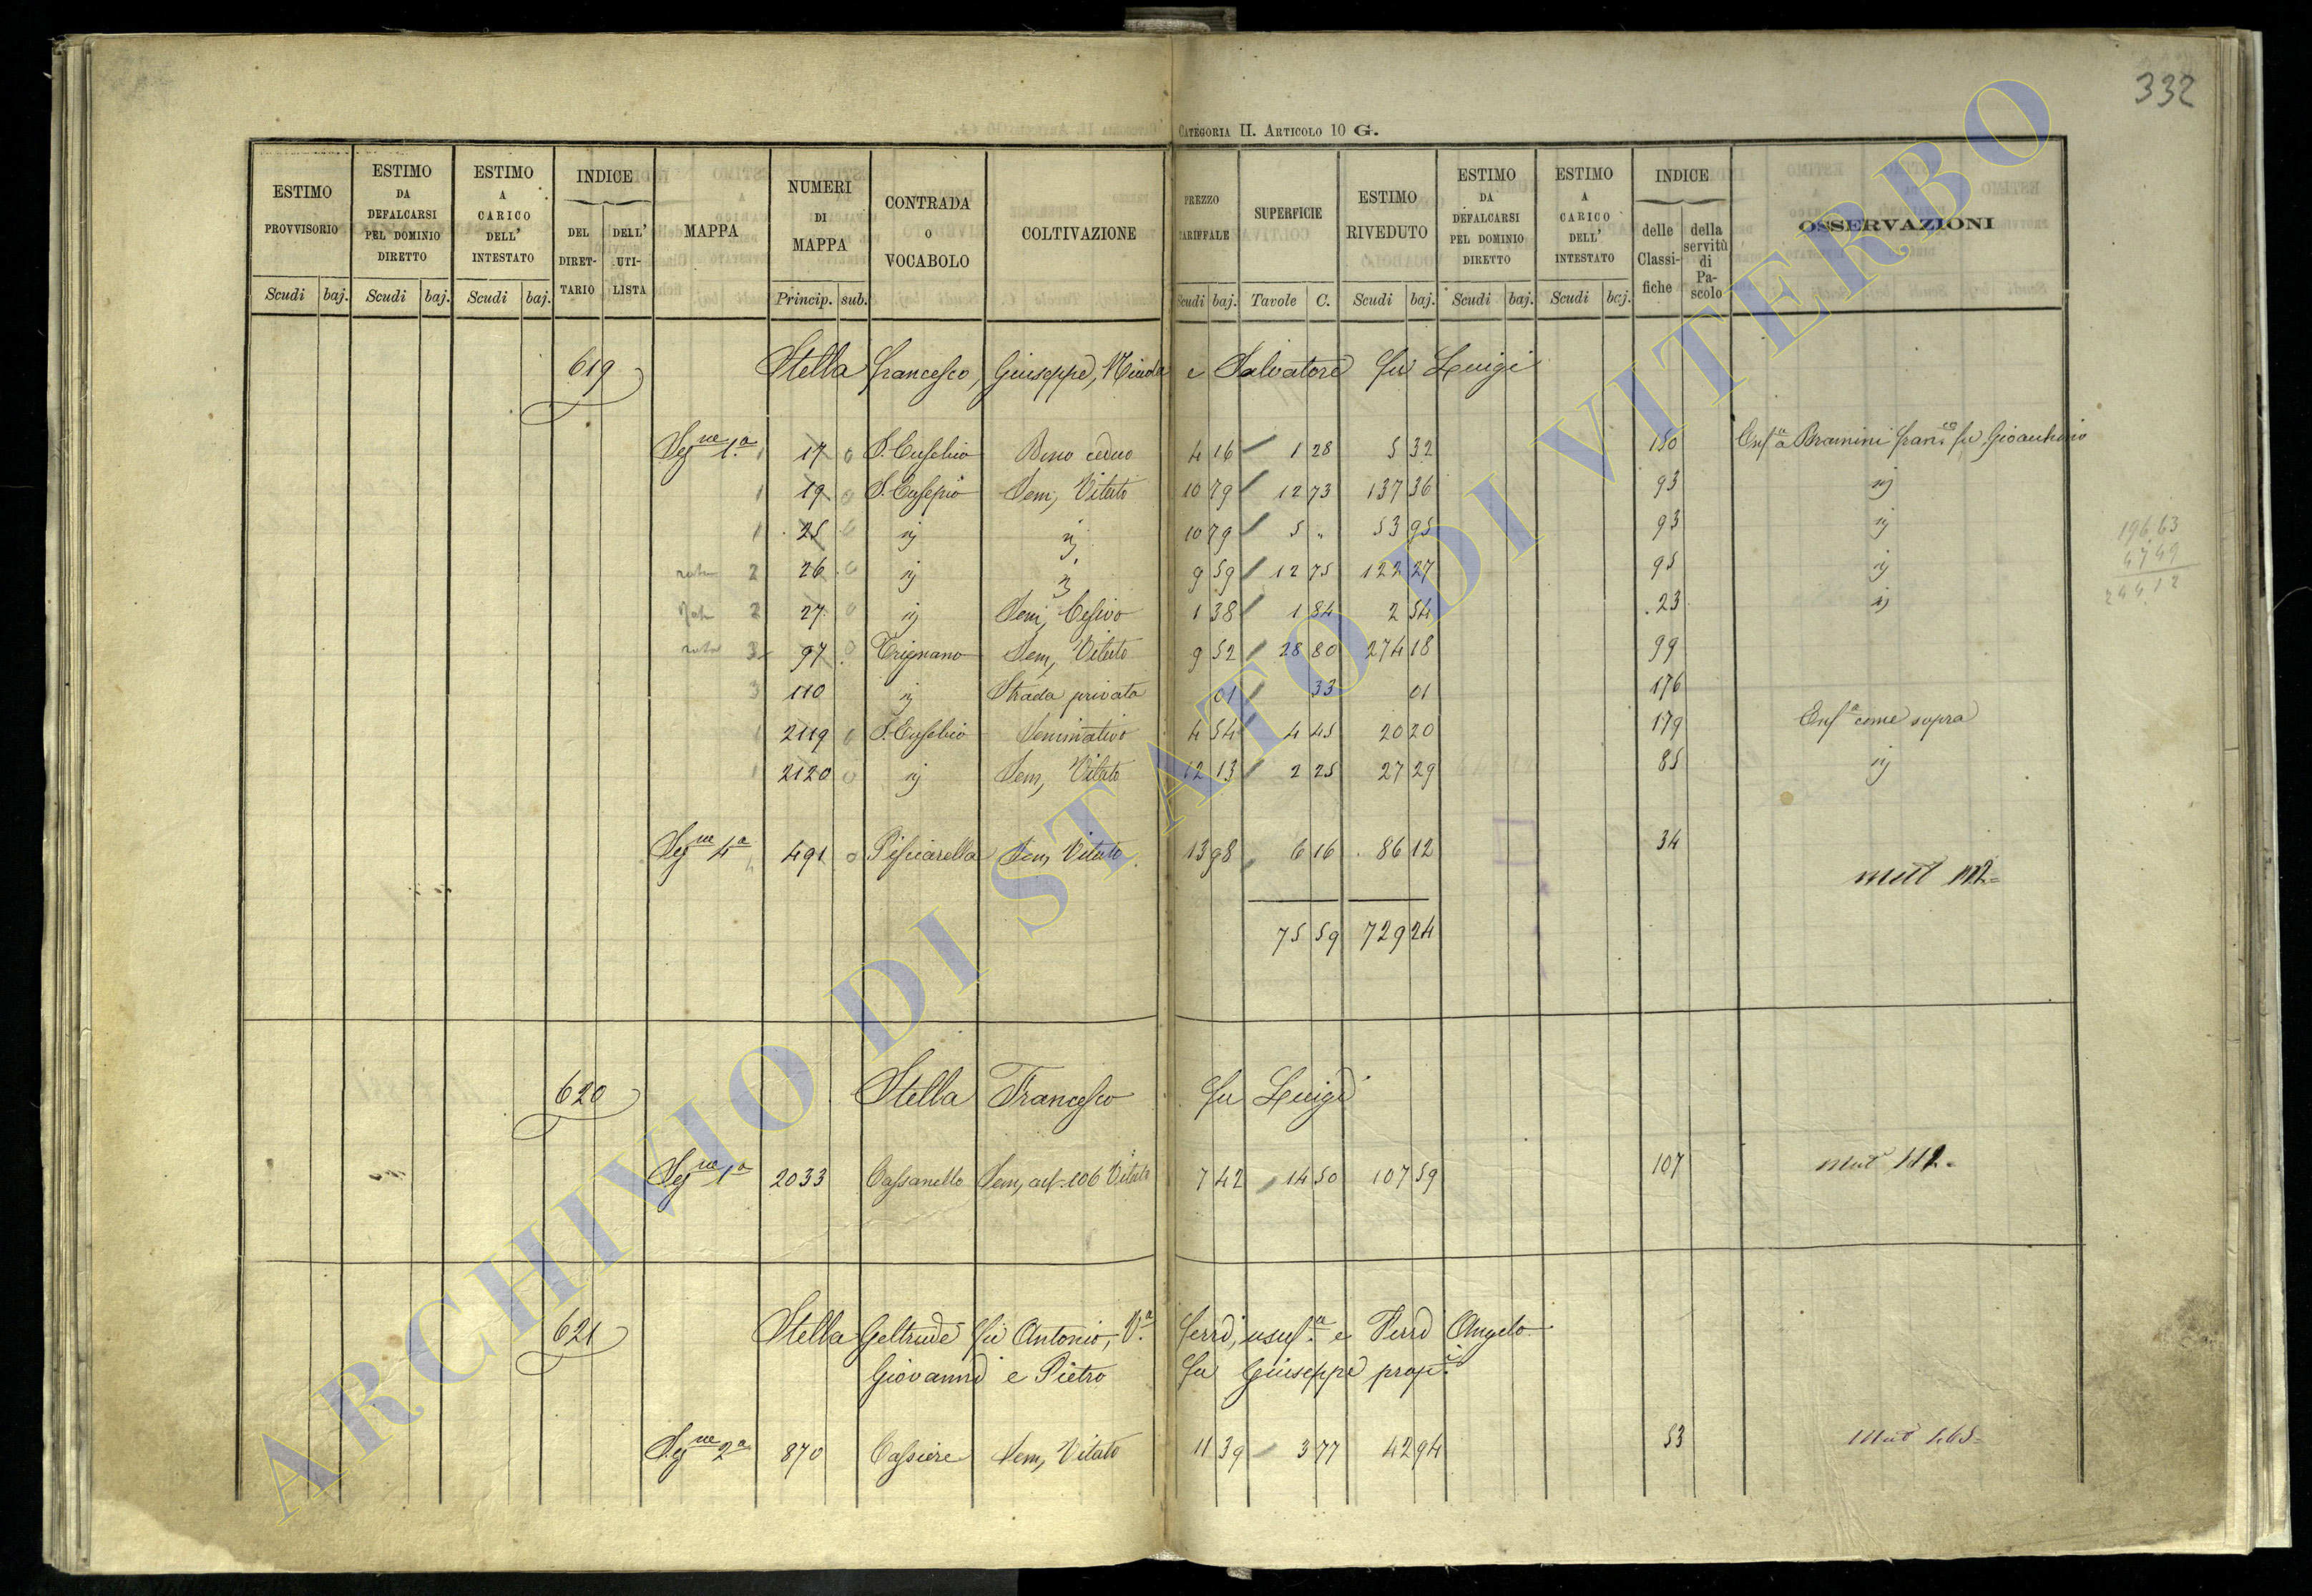 332
CATEGORIA II. ARTICOLO 10 G.
ESTIMO PROVVISORIO Scudi baj.
ESTIMO DA DEFALCARSI PEL DOMINIO DIRETTO Scudi baj.
ESTIMO A CARICO DELL' INTESTATO Scudi baj.
INDICE DEL DIRET-TARIO DELL' UTI-LISTA
MAPPA
NUMERI DI MAPPA Princip. sub.
CONTRADA O VOCABOLO
COLTIVAZIONE
PREZZO TARIFFALE Scudi baj.
SUPERFICIE Tavole C.
ESTIMO RIVEDUTO Scudi baj.
ESTIMO DA DEFALCARSI PEL DOMINIO DIRETTO Scudi baj.
ESTIMO A CARICO DELL' INTESTATO Scudi baj.
INDICE delle Classi-fiche della servitù di Pa-scolo
OSSERVAZIONI
619 Stella Francesco, Giuseppe, Nicola e Salvatore fu Luigi
Segne 1.a 1 17 0 S. Eusebio Bosco ceduo 4 16 1 28 5 32 150 Enf.a a Bramini Franco fu Gioacchino
1 19 0 S. Eusepio Sem, Vitato 10 79 12 73 137 36 93 ij
1 25 0 ij ij 10 79 5 „ 53 95 93 ij
2 26 0 ij ij 9 59 12 75 122 27 95 ij
2 27 0 ij Sem, Cesivo 1 38 1 84 2 54 23 ij
3 97 0 Trignano Sem, Vitato 9 52 28 80 274 18 99
3 110 ij Strada privata 01 33 01 176
1 2119 0 S. Eusebio Seminativo 4 54 4 45 20 20 179 Enf.a come sopra
1 2120 0 ij Sem, Vitato 12 13 2 25 27 29 85 ij
196.63
47 49
244 12
Segne 4a 4 491 0 Pisciarella Sem, Vitato 13 98 6 16 86 12 34
75 59 729 24
620 Stella Francesco fu Luigi
Segne 1a 2033 Cassanello Sem, 106 Vitato 7 42 14 50 107 59 107
621 Stella Geltrude fu Antonio, V.a Ferri, usuf.a e Ferri Angelo
Giovanni e Pietro fu Giuseppe prop.i
Segne 2a 870 Cassiere Sem, Vitato 11 39 3 77 42 94 53
ARCHIVIO DI STATO DI VITERBO